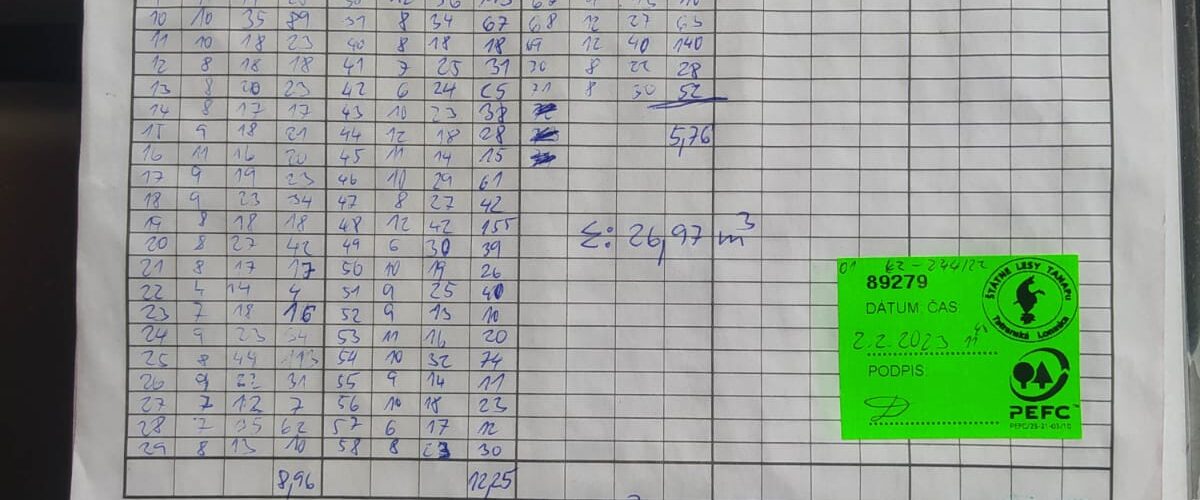 10 10 35 89 8 34 67 68 12 27 63
11 10 18 23 40 8 18 18 69 12 40 140
12 8 18 18 41 7 25 31 70 8 22 28
13 8 20 23 42 6 24 25 71 8 30 52
14 8 17 17 43 10 23 38
15 9 18 21 44 12 18 28 5,76
16 11 16 20 45 11 14 15
17 9 19 23 46 10 29 61
18 9 23 34 47 8 27 42
19 8 18 18 48 12 42 155
Σ: 26,97 m³
20 8 27 42 49 6 30 39
21 8 17 17 50 10 19 26
22 4 14 4 51 9 25 40
23 7 18 16 52 9 13 10
24 9 23 34 53 11 16 20
25 8 44 113 54 10 32 74
26 9 22 31 55 9 14 11
27 7 12 7 56 10 18 23
28 7 35 62 57 6 17 12
29 8 13 10 58 8 23 30
8,96 12,25
01 KZ-244/22
89279
DÁTUM: ČAS:
2.2.2023 11
PODPIS:
ŠTÁTNE LESY TANAPu
Tatranská Lomnica
PEFC™
PEFC/25-21-03/10